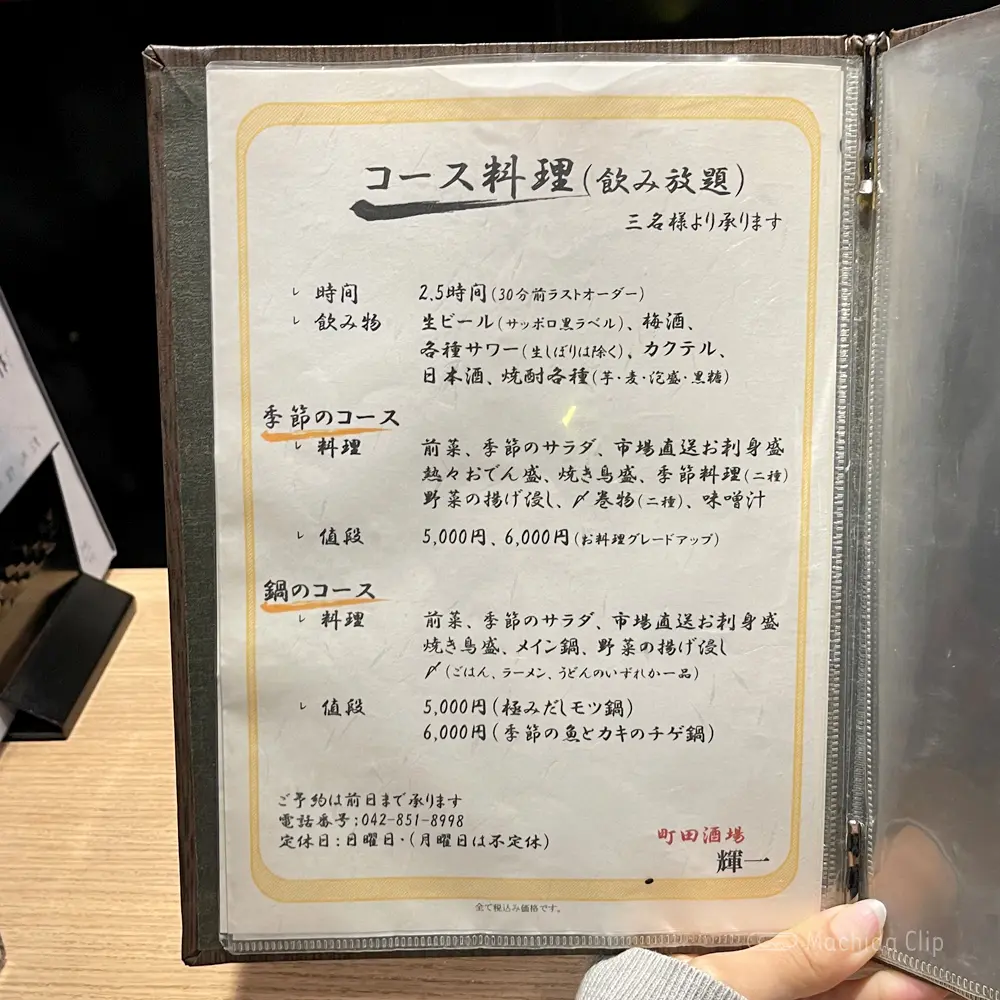 コース料理(飲み放題)
三名様より承ります
時間 2.5時間(30分前ラストオーダー)
飲み物 生ビール(サッポロ黒ラベル)、梅酒、
各種サワー(生しぼりは除く)、カクテル、
日本酒、焼酎各種(芋・麦・泡盛・黒糖)
季節のコース
料理 前菜、季節のサラダ、市場直送お刺身盛
熱々おでん盛、焼き鳥盛、季節料理(二種)
野菜の揚げ浸し、〆巻物(二種)、味噌汁
値段 5,000円、6,000円(お料理グレードアップ)
鍋のコース
料理 前菜、季節のサラダ、市場直送お刺身盛
焼き鳥盛、メイン鍋、野菜の揚げ浸し
〆(ごはん、ラーメン、うどんのいずれか一品)
値段 5,000円(極みだしモツ鍋)
6,000円(季節の魚とカキのチゲ鍋)
ご予約は前日まで承ります
電話番号:042-851-8998
定休日:日曜日・(月曜日は不定休)
町田酒場
輝一
全て税込み価格です。
Machida Clip